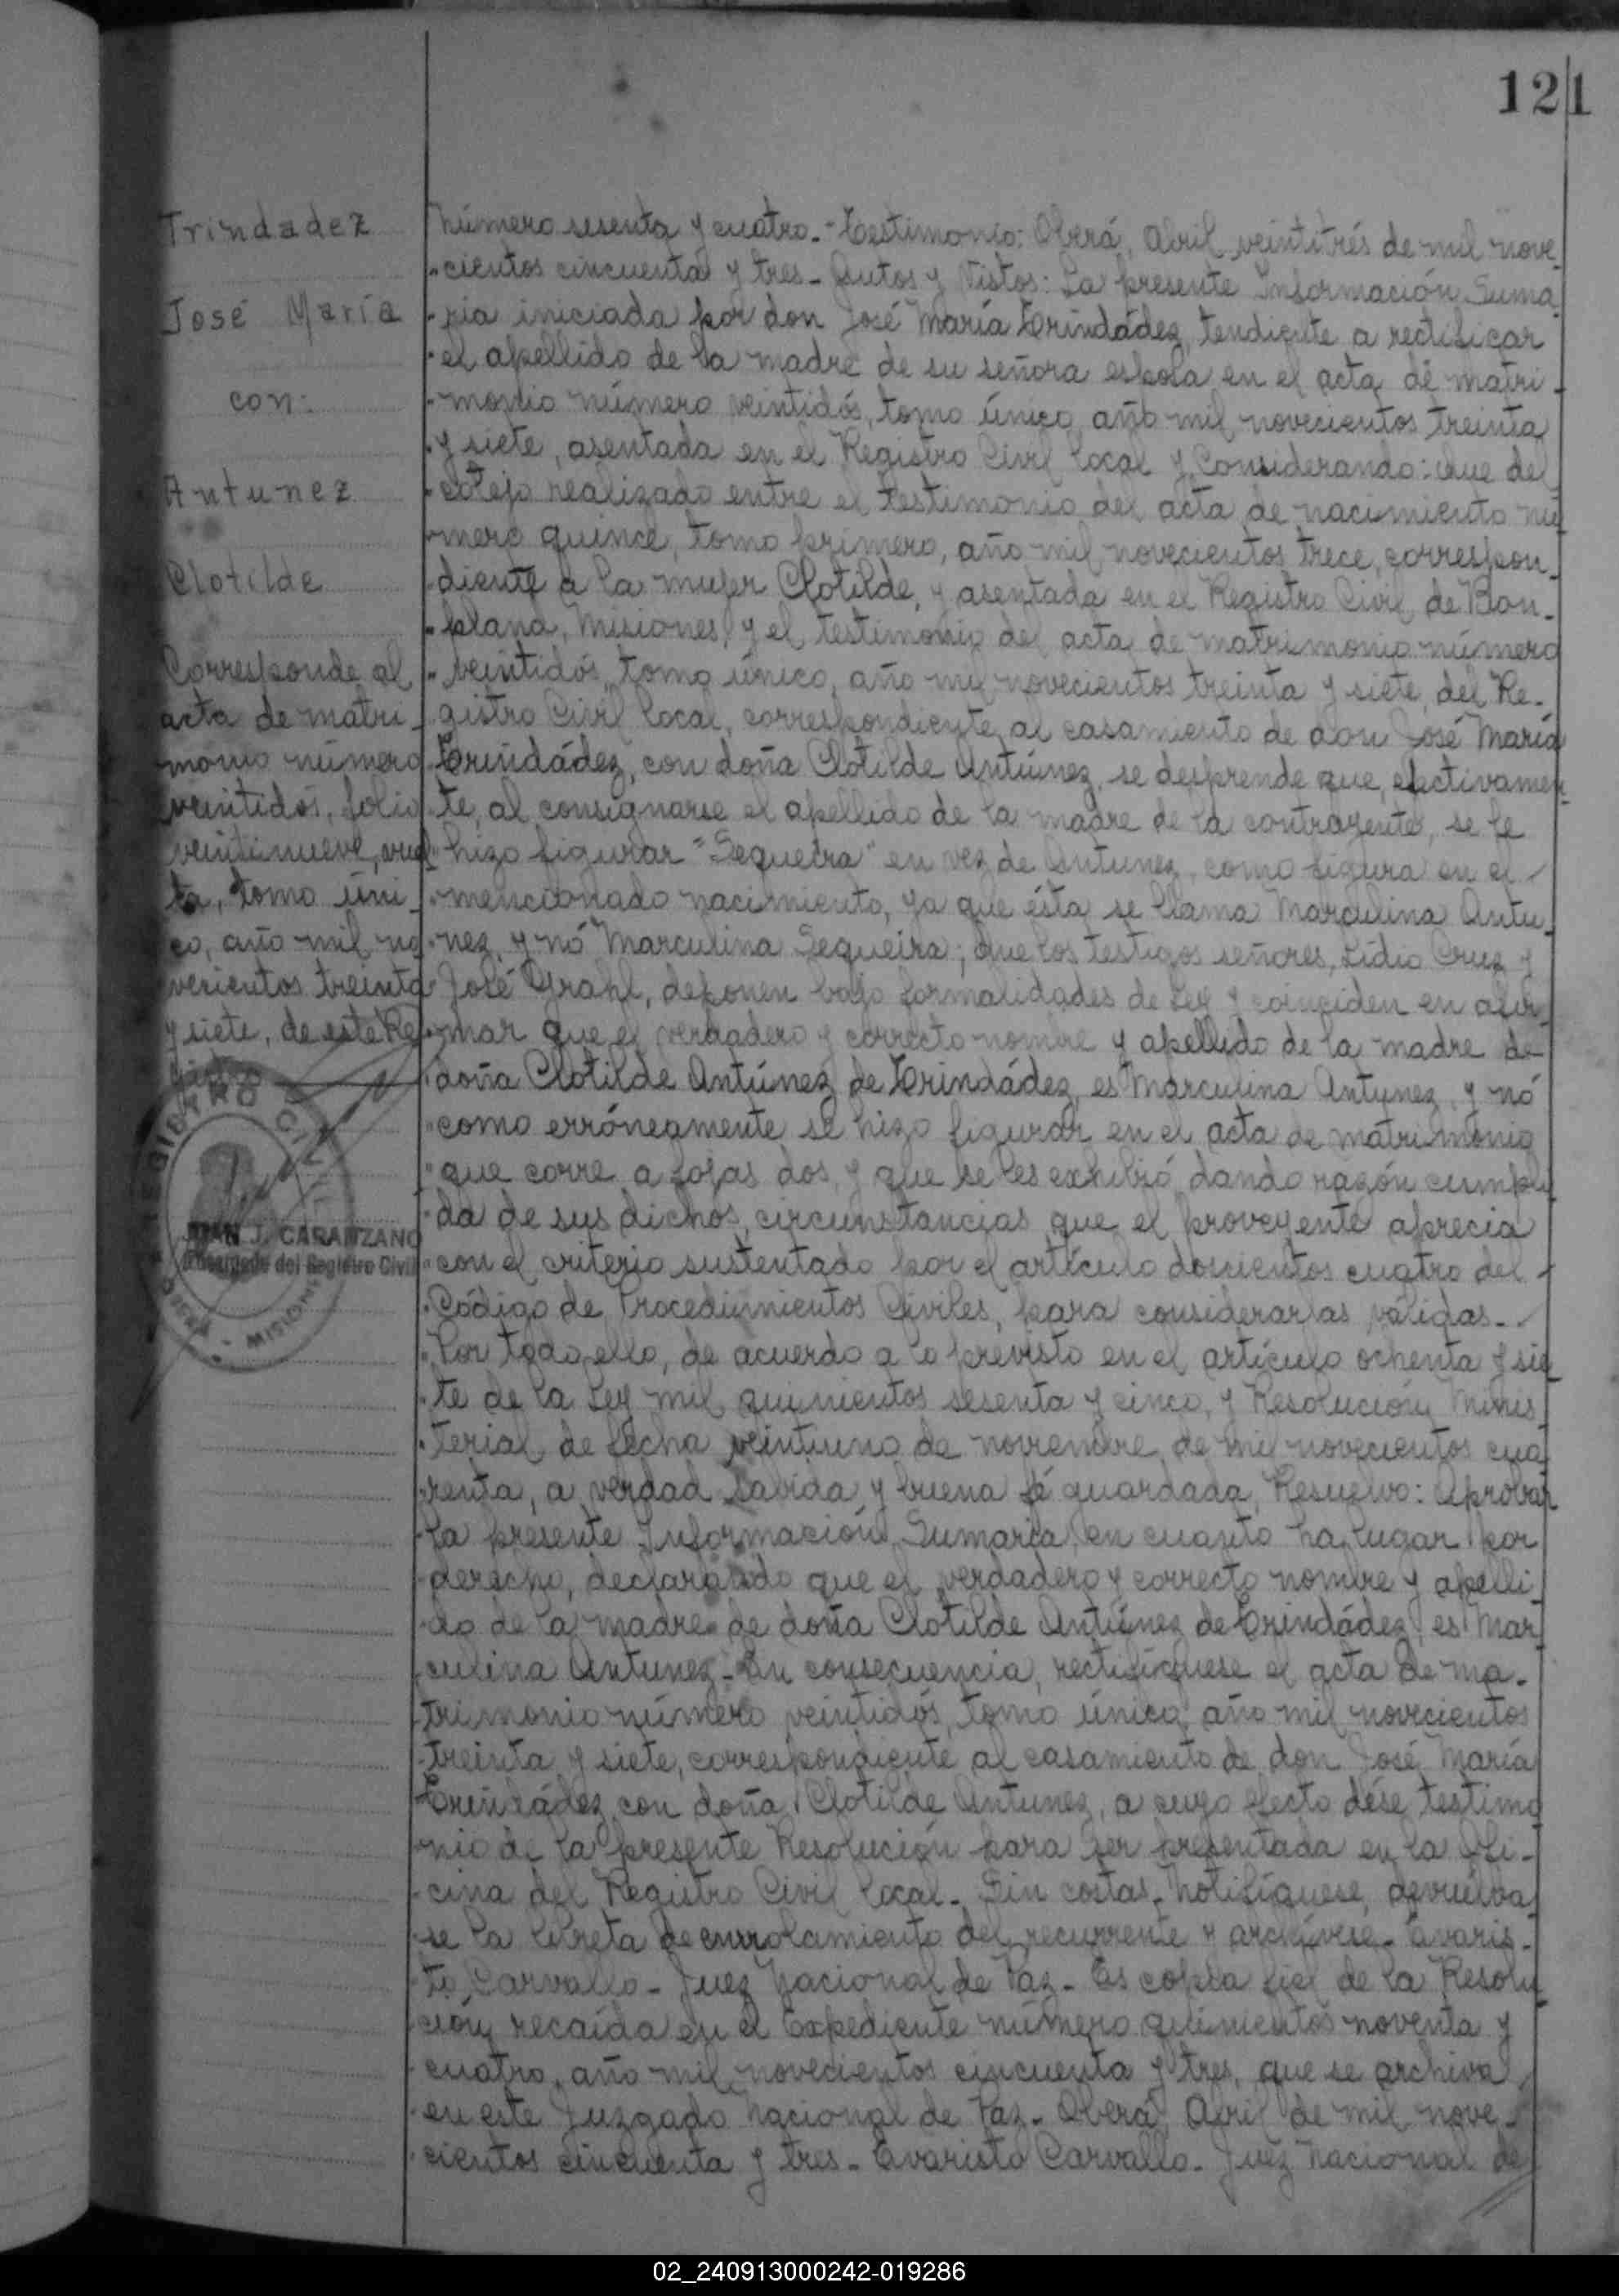 121
Trindadez
José María
con:
Antunez
Clotilde
Corresponde al
acta de matri-
monio número
veintidós, folio
veintinueve, vuel
ta, tomo úni-
co, año mil no
vecientos treinta
y siete, de este Re
gistro
REGISTRO CIVIL
JUAN J. CARANZANO
Encargado del Registro Civil
OBERÁ - MISIONES
Número sesenta y cuatro.- Testimonio: Oberá, Abril veintitrés de mil nove-
cientos cincuenta y tres- Autos y Vistos: La presente Información Suma
ria iniciada por don José María Trindádez, tendiente a rectificar
el apellido de la madre de su señora esposa en el acta de matri-
monio número veintidós, tomo único, año mil novecientos treinta
y siete, asentada en el Registro Civil local y Considerando: Que del
cotejo realizado entre el testimonio del acta de nacimiento nú
mero quince, tomo primero, año mil novecientos trece, correspon-
diente a la mujer Clotilde, y asentada en el Registro Civil de Bon-
pland, Misiones, y el testimonio del acta de matrimonio número
veintidós, tomo único, año mil novecientos treinta y siete, del Re-
gistro Civil local, correspondiente al casamiento de don José María
Trindádez, con doña Clotilde Antúnez, se desprende que, efectivamen-
te, al consignarse el apellido de la madre de la contrayente, se le
hizo figurar "Sequeira" en vez de Antunez, como figura en el
mencionado nacimiento, ya que ésta se llama Marculina Antu-
nez, y nó Marculina Sequeira; que los testigos señores, Lidio Cruz y
José Grahl, deponen bajo formalidades de Ley y coinciden en afir-
mar que el verdadero y correcto nombre y apellido de la madre de
doña Clotilde Antúnez de Trindádez, es Marculina Antunez, y nó
como erróneamente se hizo figurar en el acta de matrimonio
que corre a fojas dos, y que se les exhibió, dando razón cumpli
da de sus dichos, circunstancias que el proveyente aprecia
con el criterio sustentado por el artículo doscientos cuatro del
Código de Procedimientos Civiles, para considerarlas válidas-
Por todo ello, de acuerdo a lo previsto en el artículo ochenta y sie
te de la Ley mil quinientos sesenta y cinco, y Resolución Minis
terial de fecha veintiuno de noviembre de mil novecientos cua
renta, a verdad sabida y buena fé guardada, Resuelvo: Aprobar
la presente Información Sumaria, en cuanto ha lugar por
derecho, declarando que el verdadero y correcto nombre y apelli
do de la madre de doña Clotilde Antúnez de Trindádez, es Mar
culina Antunez- En consecuencia, rectifíquese el acta de ma-
trimonio número veintidós, tomo único, año mil novecientos
treinta y siete, correspondiente al casamiento de don José María
Trindádez con doña Clotilde Antunez, a cuyo efecto dése testimo
nio de la presente Resolución para ser presentada en la Ofi-
cina del Registro Civil local- Sin costas- Notifíquese, devuélva
se la libreta de enrolamiento del recurrente y archívese- Evaris-
to Carvallo- Juez Nacional de Paz- Es copia fiel de la Resolu
ción recaída en el Expediente número quinientos noventa y
cuatro, año mil novecientos cincuenta y tres, que se archiva
en este Juzgado Nacional de Paz- Oberá, Abril de mil nove-
cientos cincuenta y tres- Evaristo Carvallo- Juez Nacional de
02_240913000242-019286